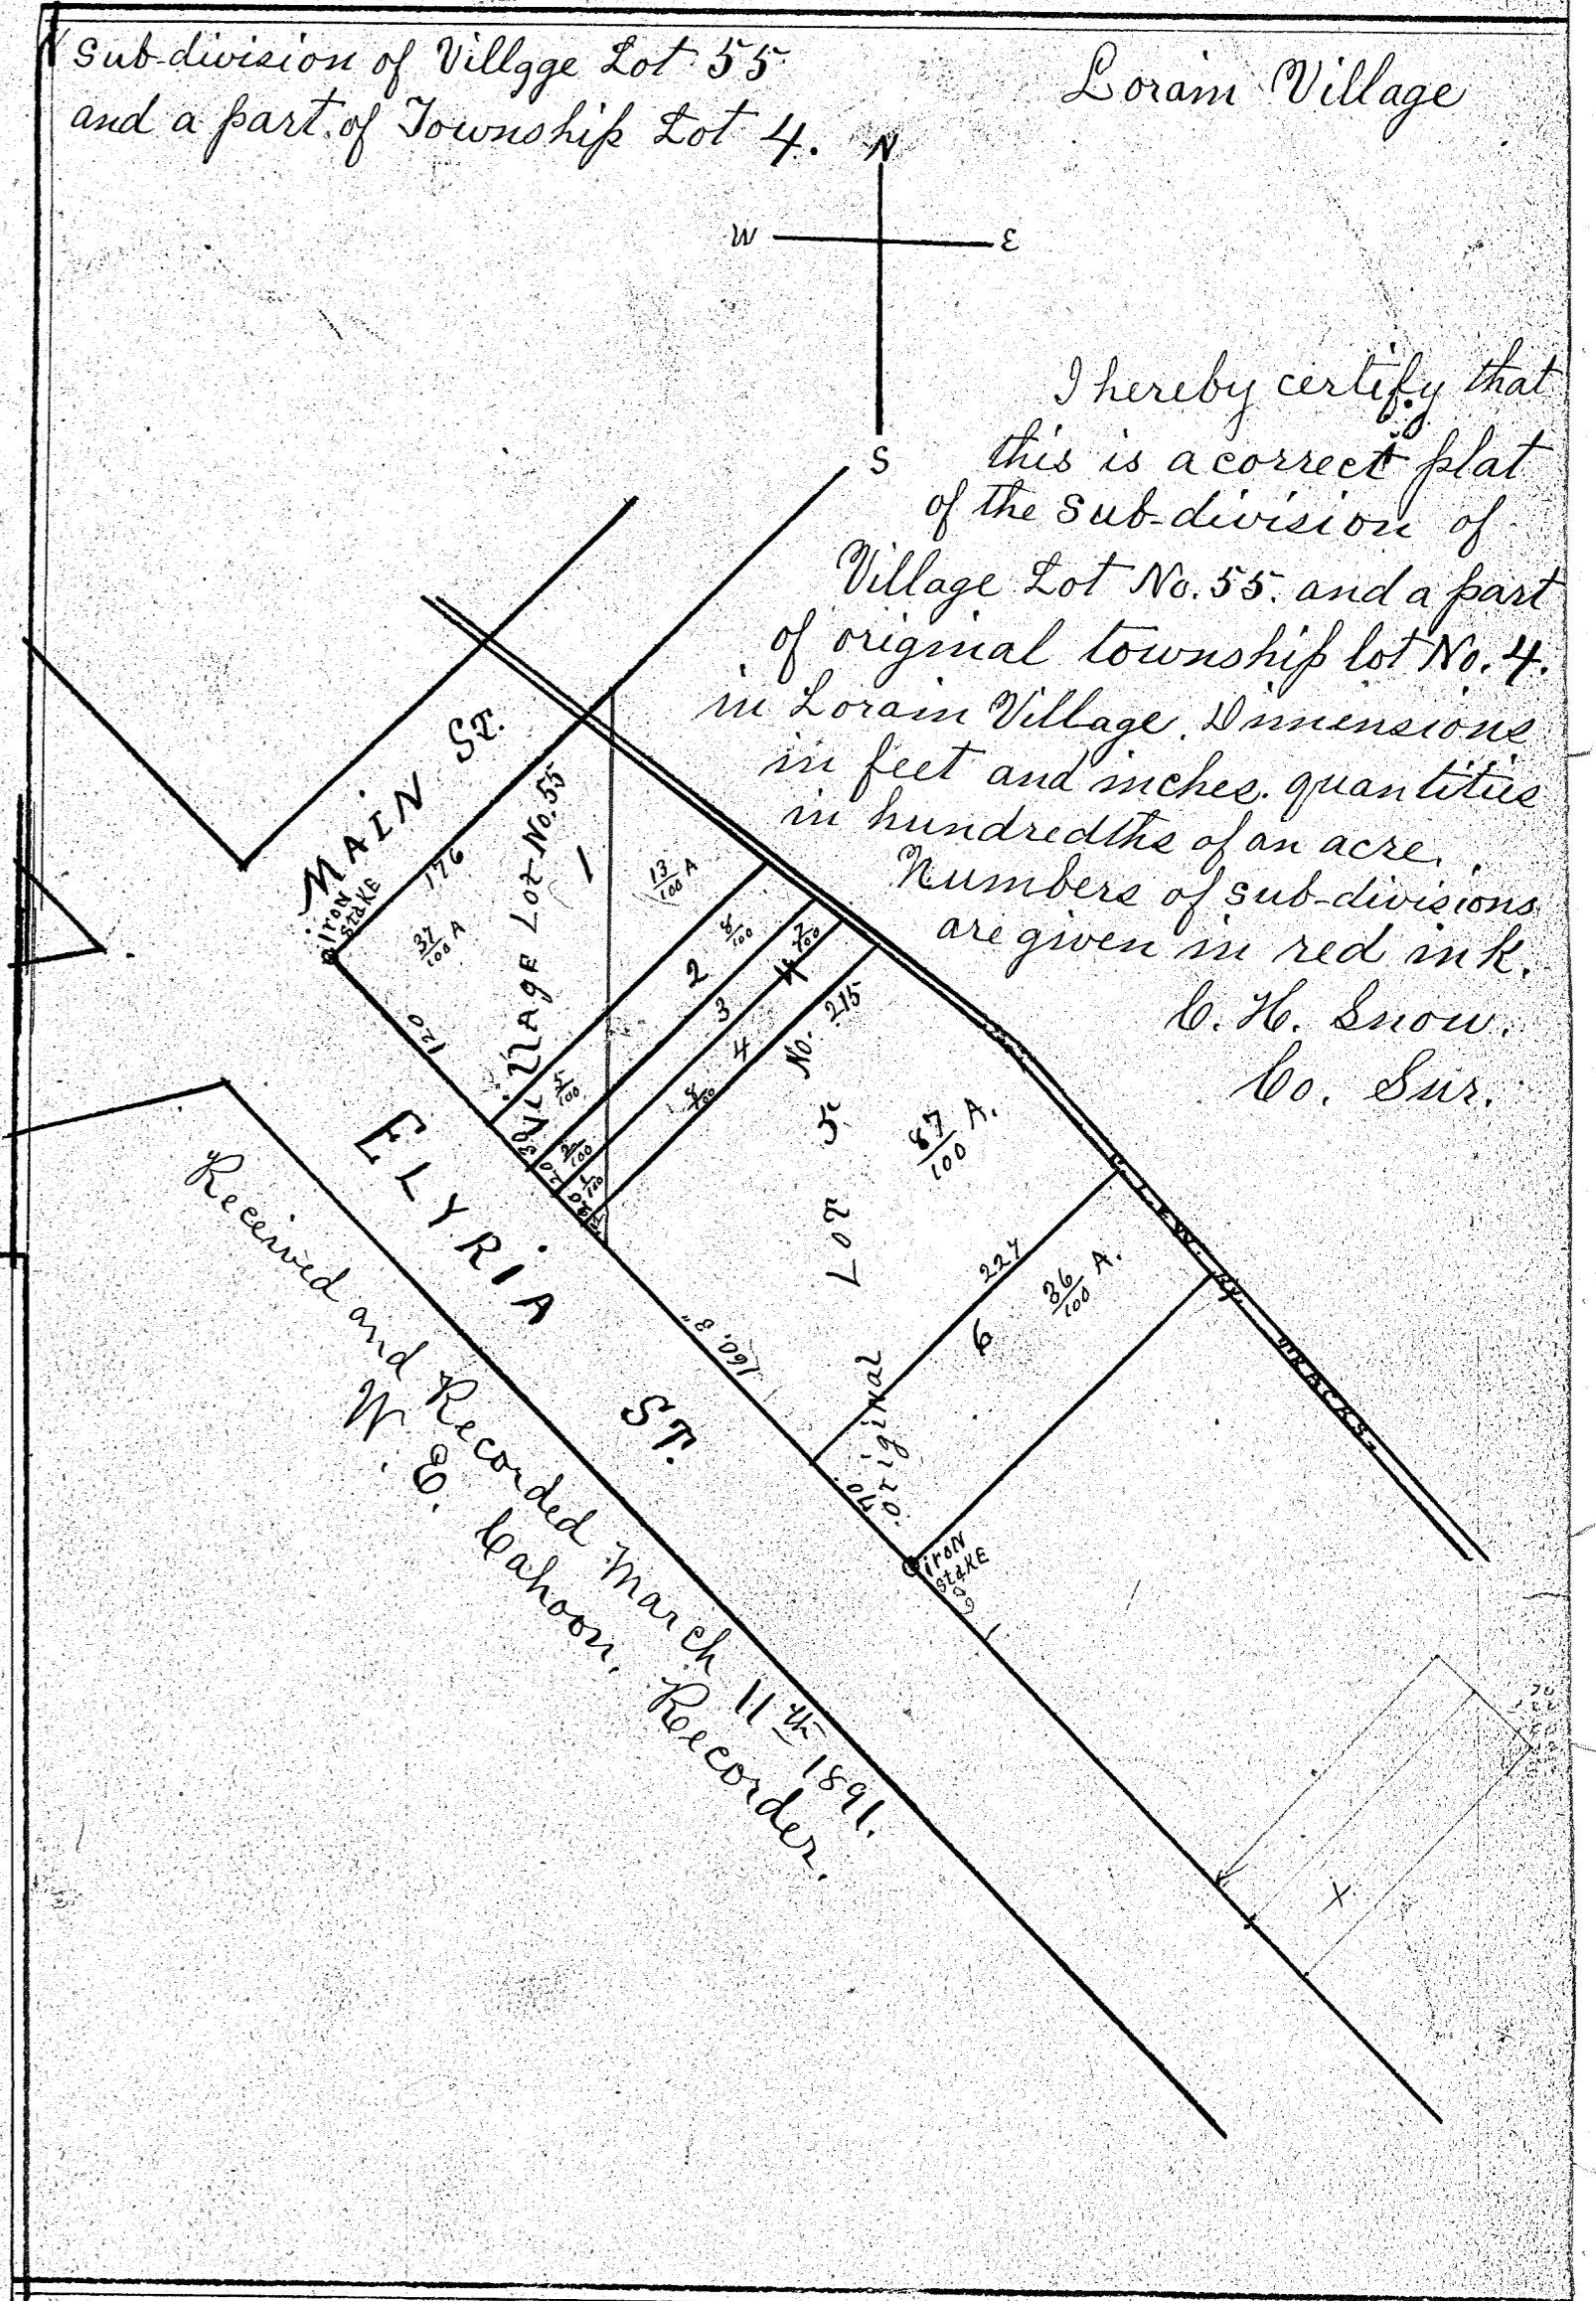 Sub-division of Villgge Lot 55
and a part of Township Lot 4.
Lorain Village
N
W
E
S
I hereby certify that
this is a correct plat
of the sub-division of
Village Lot No. 55. and a part
of original township lot No. 4.
in Lorain Village. Dimensions
in feet and inches. quantities
in hundredths of an acre.
Numbers of sub-divisions
are given in red ink.
C. H. Snow.
Co. Sur.
MAIN ST.
iron
stake
176
37/100 A
120
VILLAGE LOT No. 55
1
13/100 A
2
8/100
5/100
30
3
7/100
2/100
20
4
8/100
1/100
20
No. 215
5
87/100 A.
LOT
original
160. 8"
227
6
36/100 A.
70.
iron
stake
C. LEW. Ry. TRACKS.
ELYRIA ST.
Received and Recorded March 11th 1891.
W. E. Cahoon. Reecorder.
X